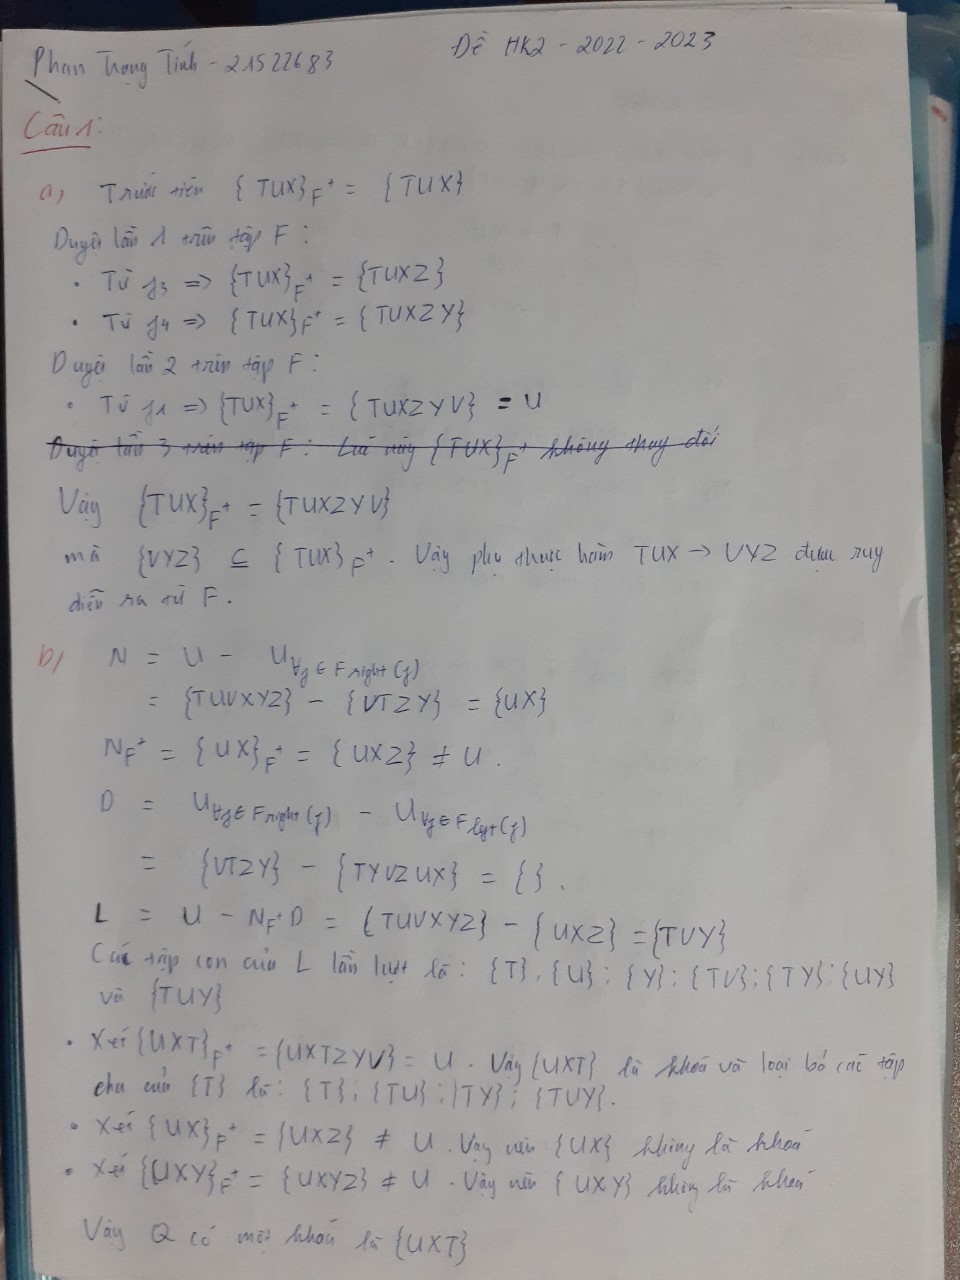 Phan Trọng Tính - 21522683
Đề HK2 - 2022 - 2023
Câu 1:
a) Trước tiên {TUX}F+ = {TUX}
Duyệt lần 1 trên tập F:
• Từ f3 => {TUX}F+ = {TUXZ}
• Từ f4 => {TUX}F+ = {TUXZY}
Duyệt lần 2 trên tập F:
• Từ f1 => {TUX}F+ = {TUXZYV} = U
Duyệt lần 3 trên tập F: Lúc này {TUX}F+ không thay đổi
Vậy {TUX}F+ = {TUXZYV}
mà {VYZ} ⊆ {TUX}F+. Vậy phụ thuộc hàm TUX → VYZ được suy
diễn ra từ F.
b) N = U - U∀f ∈ F right(f)
= {TUVXYZ} - {VTZY} = {UX}
NF+ = {UX}F+ = {UXZ} ≠ U.
D = U∀f ∈ F right(f) - U∀f ∈ F left(f)
= {VTZY} - {TYVZUX} = {}.
L = U - NF+D = {TUVXYZ} - {UXZ} = {TVY}
Các tập con của L lần lượt là: {T}, {U}; {Y}; {TV}; {TY}; {UY}
và {TUY}
• Xét {UXT}F+ = {UXTZYV} = U. Vậy {UXT} là khoá và loại bỏ các tập
cha của {T} là: {T}; {TU}; {TY}; {TUY}.
• Xét {UX}F+ = {UXZ} ≠ U. Vậy nên {UX} không là khoá
• Xét {UXY}F+ = {UXYZ} ≠ U. Vậy nên {UXY} không là khoá
Vậy Q có một khoá là {UXT}